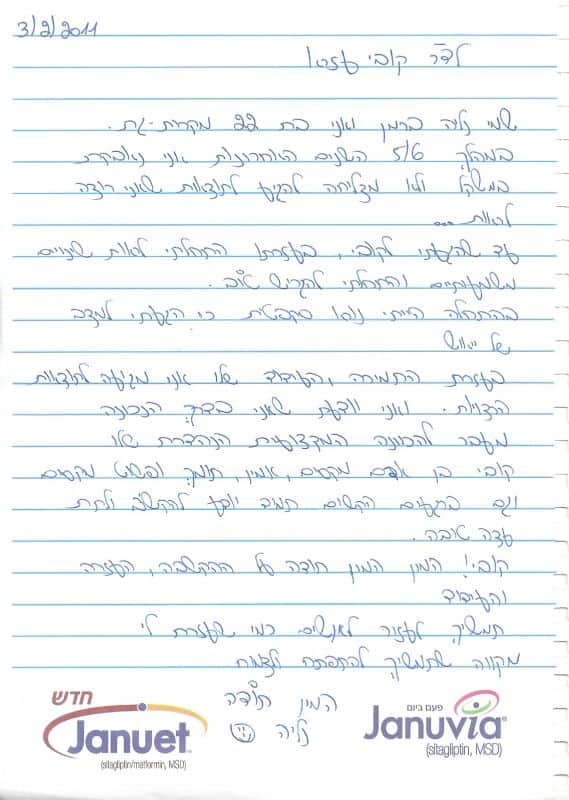 3/2/2011
לד"ר קובי עזרא
שמי גליה ברמן ואני בת 22 מקרית-גת.
במהלך 5/6 השנים האחרונות אני נאבקת
במשקל ולא מצליחה להגיע לתוצאות שאני רוצה
לראות ...
עד שהגעתי לקובי, בעזרתו התחלתי לראות שינויים
משמעותיים והתחלתי להרגיש טוב.
בהתחלה הייתי נורא סקפטית כי הגעתי למצב
של ייאוש
בעזרת התמיכה, העידוד שלו אני מגיעה לתוצאות
הרצויות. ואני יודעת שאני בדרך הנכונה
מעבר להכוונה המקצועית הנהדרת שלו
קובי בן אדם מקסים, אמין, תומך ופשוט מקסים
וגם ברגעים הקשים תמיד יודע להקשיב ולתת
עצה טובה.
קובי! המון המון תודה על ההקשבה, העזרה
והעידוד
תמשיך לעזור לאנשים כמו שעזרת לי
מקווה שתמשיך להתפתח ולצמוח
המון תודה
גליה
חדש
Janumet
(sitagliptin/metformin, MSD)
פעם ביום
Januvia®
(sitagliptin, MSD)